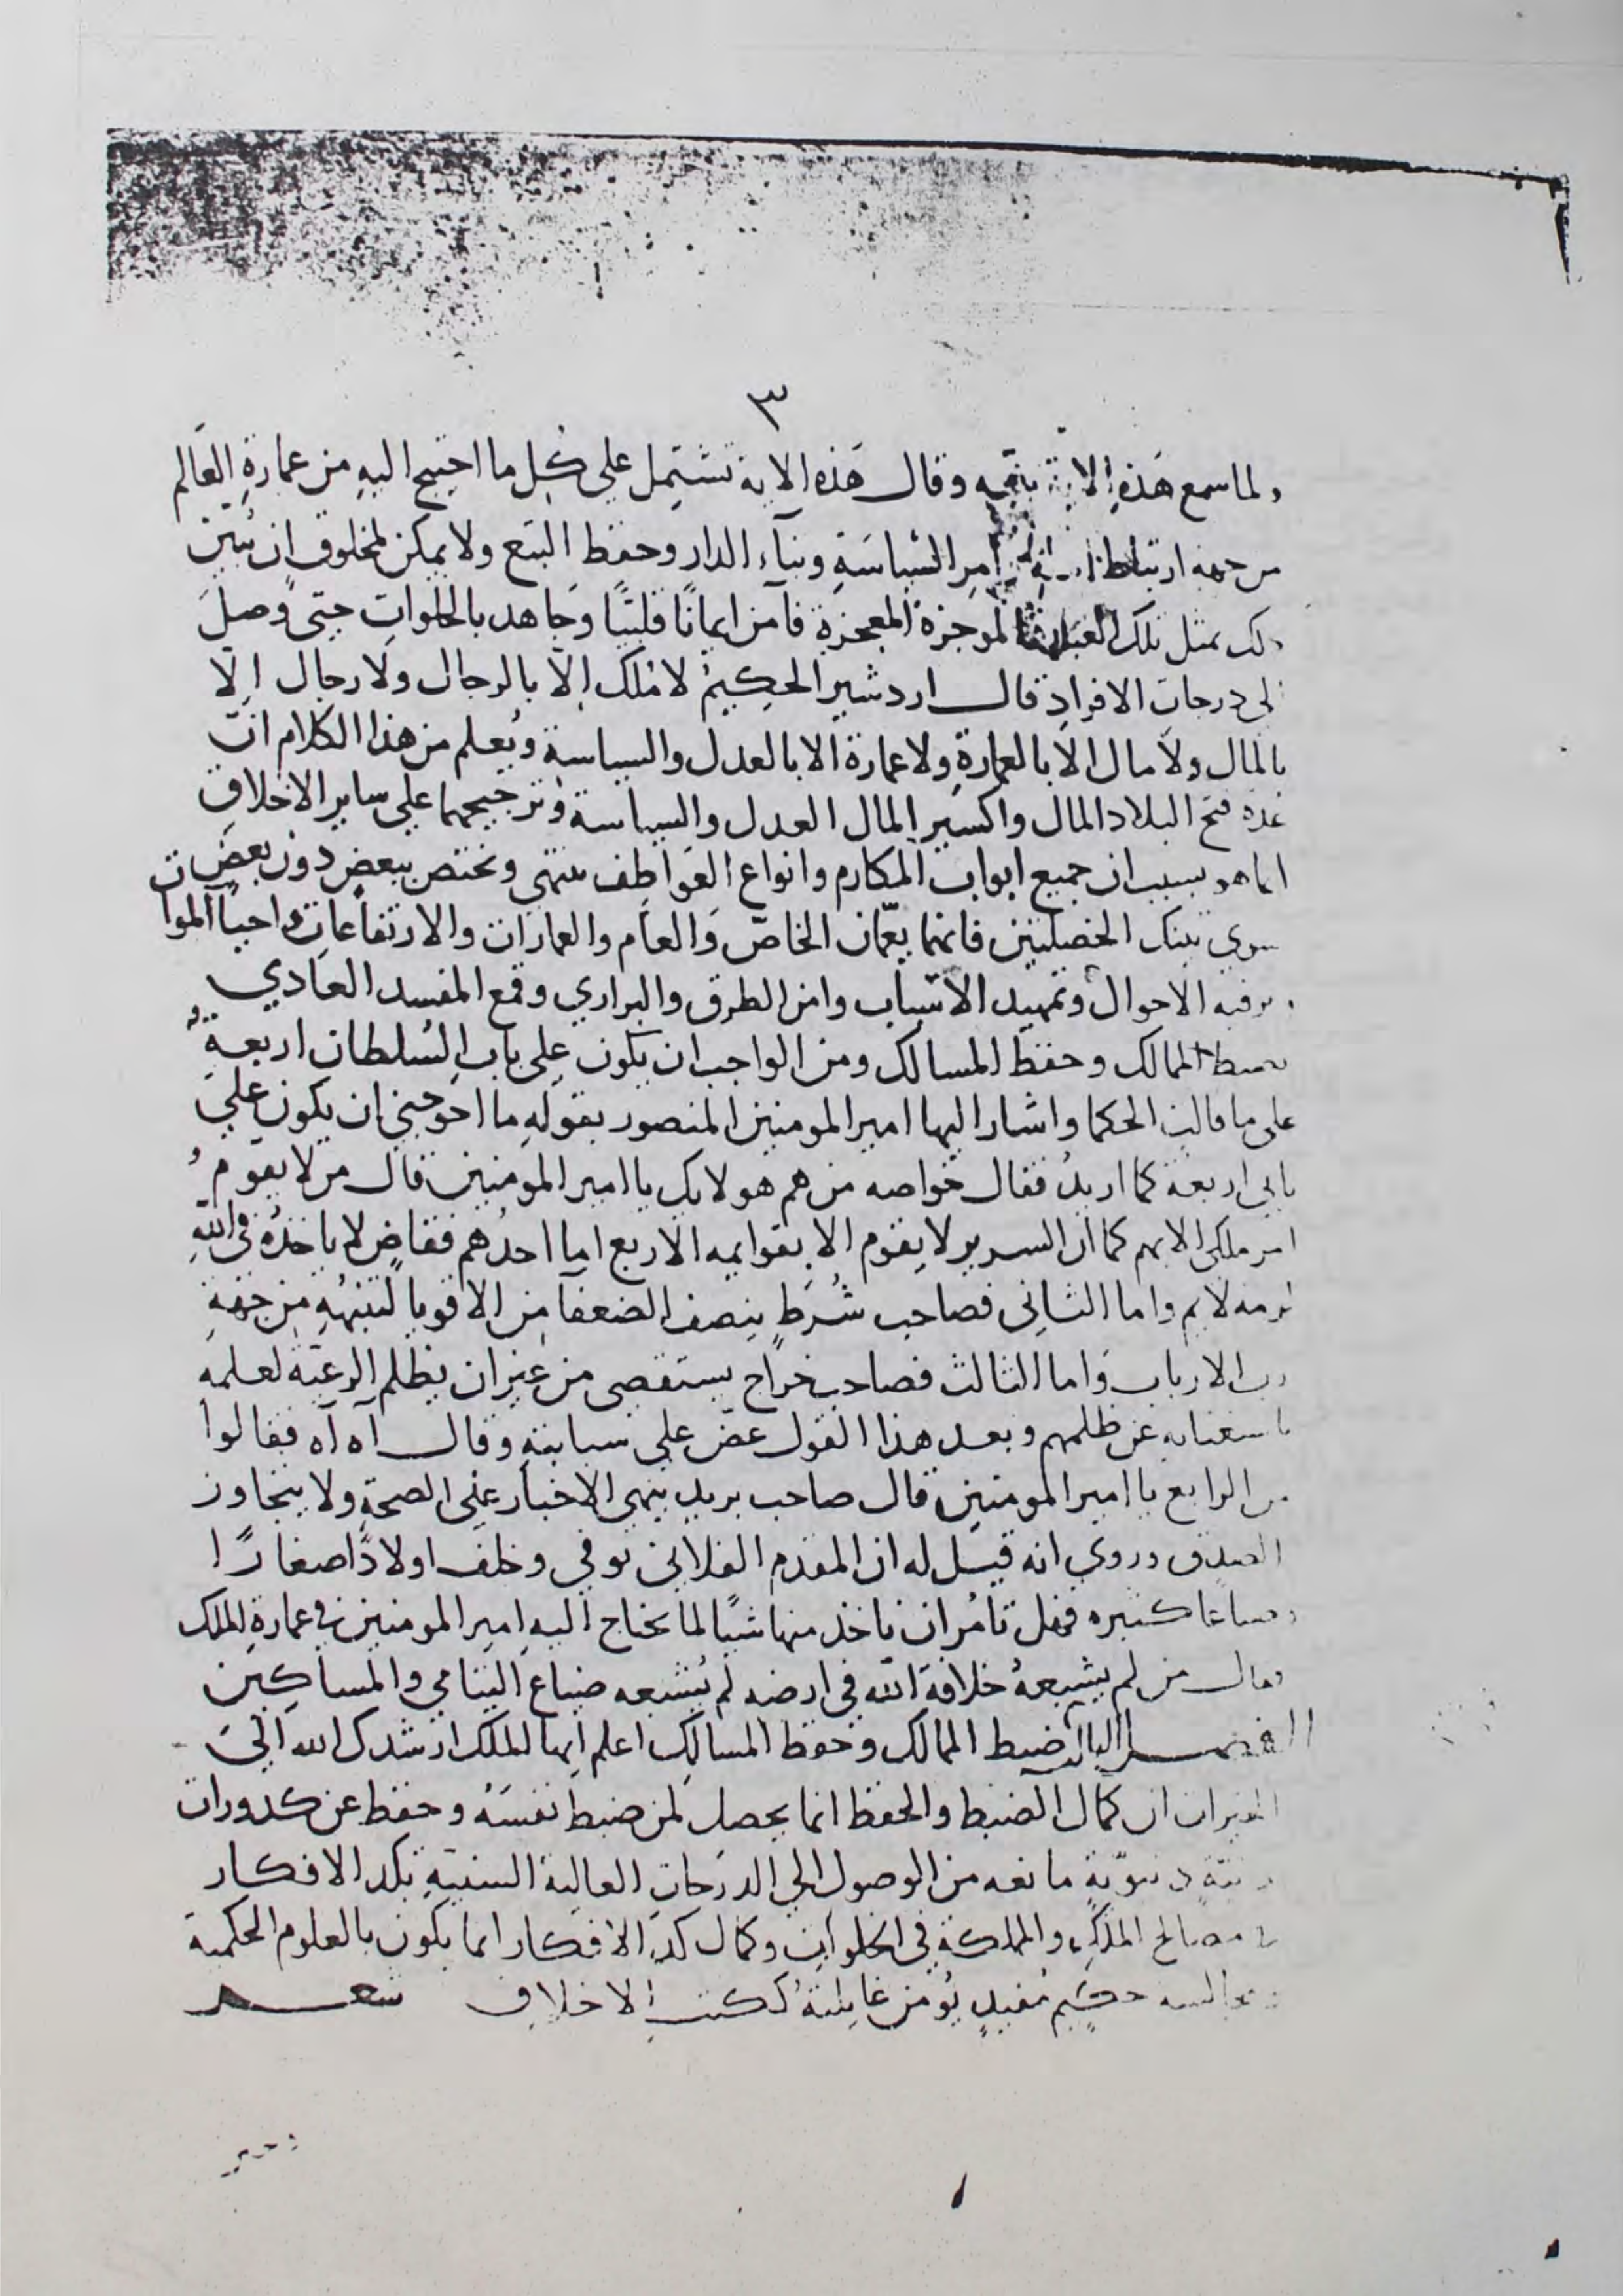 ٣
ولما سمع هَذِهِ الاية وقال هَذه الاية تشتمل على كُل ما احتيج اليهِ من عمارةِ العَالم
من جهه ارتباط امر السّياسَةِ وبنآء الدار وحفظ البيَع ولا يمكن لمخلوق ان يُبين
ذلك بمثل تلك العبارة الموجزة المعجزة فآمن ايمانًا قلبيًا وجَاهد بالخلواتِ حتى وصلَ
الى درجات الافرادِ قال اردشير الحكِيمُ لا مُلك اِلّا بالرجال ولا رجال اِلا
بالمال ولا مال الا بالعمارةِ ولا عمارة الا بالعدل والسياسة ويُعلم من هذا الكلام انّ
عدة فتح البلاد المال واكسير المال العدل والسياسة وترجيحهما على ساير الاخلاقِ
انما هو بسبب ان جميع ابواب المكارم وانواع العَواطِف تنتهى وتختص ببعضٍ دون بعضٍ
سوى تينك الخصلتين فانهما يعّمان الخاصّ وَالعام والعمارات والارتفاعات واحياء الموات
وترفيه الاحوال وتمهيد الاسباب وامن الطرق والبراري وقمع المفسد العادي
وضبط الممالك وحفظ المسالك ومن الواجب ان يكون على باب السُلطان اربعةٌ
على ما قالت الحكما واشار اليها امير المومنين المنصور بقولهِ ما احوجنى ان يكون على
بابى اربعة كما اريدُ فقال خواصه من هم هولايك يا امير المومنين قال من لا يقومُ
امر ملكى الا بهم كما ان السرير لا يقوم الا بقوايمه الاربع اما احدُهم فقاضٍ لا ياخذُهُ فى اللهِ
لومه لايم واما الثانِى فصاحب شُرَطٍ ينصف الضعفآ من الاقويا لتنبهُهِ من جهَةِ
رب الارباب وَاما الثالث فصاحب خراج يستقصى من غير ان يظلم الرعيّة لعلمه
باستغنايه عن ظلمهم وبعد هذا القول عضّ على سبابتهِ وقال آه آه فقالوا
من الرابع يا امير المومنين قال صاحب بريد ينهى الاخبار على الصحةِ ولا يتجاوز
الصدق وروي انه قيل له ان المقدم الفلانى توفى وخلف اولادًا صغارًا
وضياعًا كثيره فهل تامُر ان ناخذ منها شيًا لما يحتاج اليهِ امير المومنين فى عمارةِ الملك
فقال من لم يشبعهُ خلافة اللّه فى ارضه لم يُشبعه ضياع اليتامى والمساكِين
الفصل الثالث ضبط الممالك وحفظ المسالِك اعلم ايها الملك ارشدك الله الىَ
الخيرات ان كمال الضبط والحفظ انما يحصل لمن ضبط نفسَهُ وحفظ عن كدورات
دنيّة دنيوّيةٍ مانعه من الوصول الى الدرَجات العالية السنيّةِ بكد الافكار
فى مصالح الملك والمملكة فى الخلوات وكمال كدّ الافكار انما يكون بالعلوم الحكمية
ومجالسه حكيم مُفيدٍ يُومَن غايلتهُ ككتب الاخلاق شعـــر